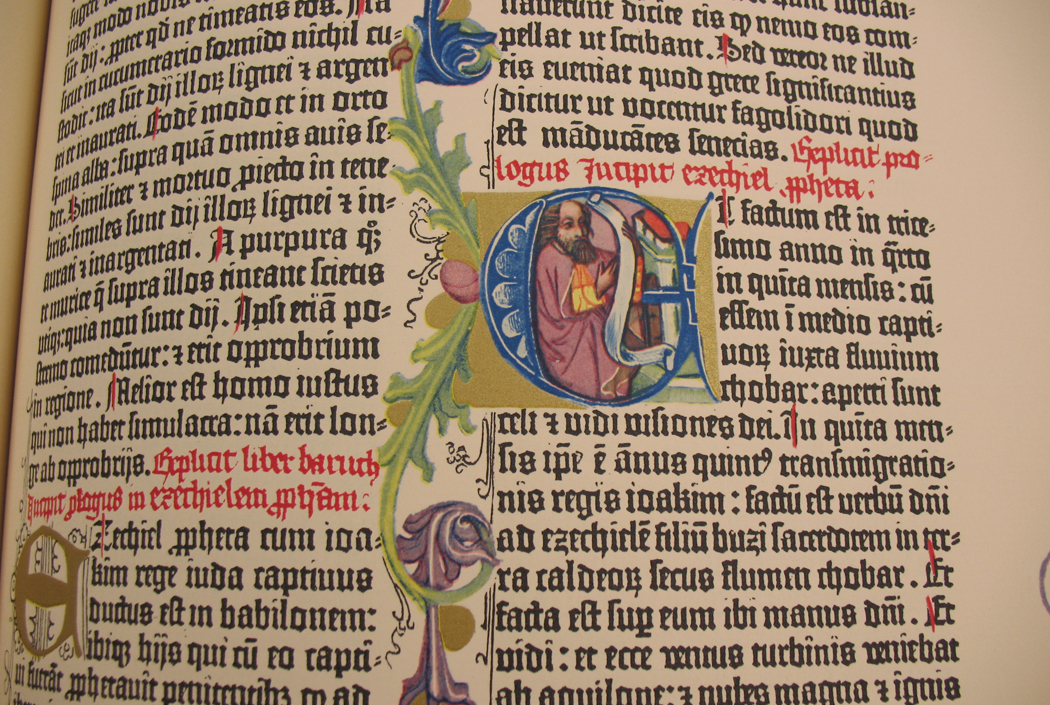 iugere modo nobis
itaq; modo ne timeatis eos. Na
sūt dij: ppter qd ne timeatis eos. Na
sicut in cucumerario formido nichil cu-
stodit: ita sūt dij illoꝝ lignei ⁊ argen-
tei et inaurati. Eodē modo et in orto
spina alba: supra quā omnis auis se-
det. Similiter ⁊ mortuo ꝓiecto in tene-
bris: similes sunt dij illoꝝ lignei ⁊ in-
aurati ⁊ inargentati. A purpura qꝫ
et murice q̄ supra illos tineant scietis
utiqꝫ: quia non sunt dij. Ipsi etiā po-
stremo comedūtur: ⁊ erit opprobrium
in regione. Melior est homo iustus
qui non habet simulacra: nā erit lon-
ge ab opprobrijs. Explicit liber baruch
Incipit ꝓlogus in ezechielem ꝓphetam:
Ezechiel ꝓpheta cum ioa-
kim rege iuda captiuus
ductus est in babilonem:
ibiqꝫ hijs qui cū eo capti-
ui fuerāt ꝓphetauit penitentibꝫ ꝙ ad
nauerunt dicite eis ꝙ nemo eos com-
pellat ut scribant. Sed vereor ne illud
eis eueniat quod grece significantius
dicitur ut vocentur fagolidori quod
est māducātes senecias. Explicit pro-
logus Incipit ezechiel ꝓpheta:
Et factum est in trice-
simo anno in q̄rto
in quīta mensis: cū
essem ī medio capti-
uoꝝ iuxta fluuium
chobar: aperti sunt
celi ⁊ vidi visiones dei. In quīta men-
sis ip̄e ē ānus quintꝰ transmigratio-
nis regis ioakim: factū est verbū dn̄i
ad ezechielē filiū buzi sacerdotem in ter-
ra caldeoꝝ secus flumen chobar. Et
facta est suꝑ eum ibi manus dn̄i. Et
vidi: et ecce ventus turbinis veniebat
ab aquilone: ⁊ nubes magna ⁊ ignis